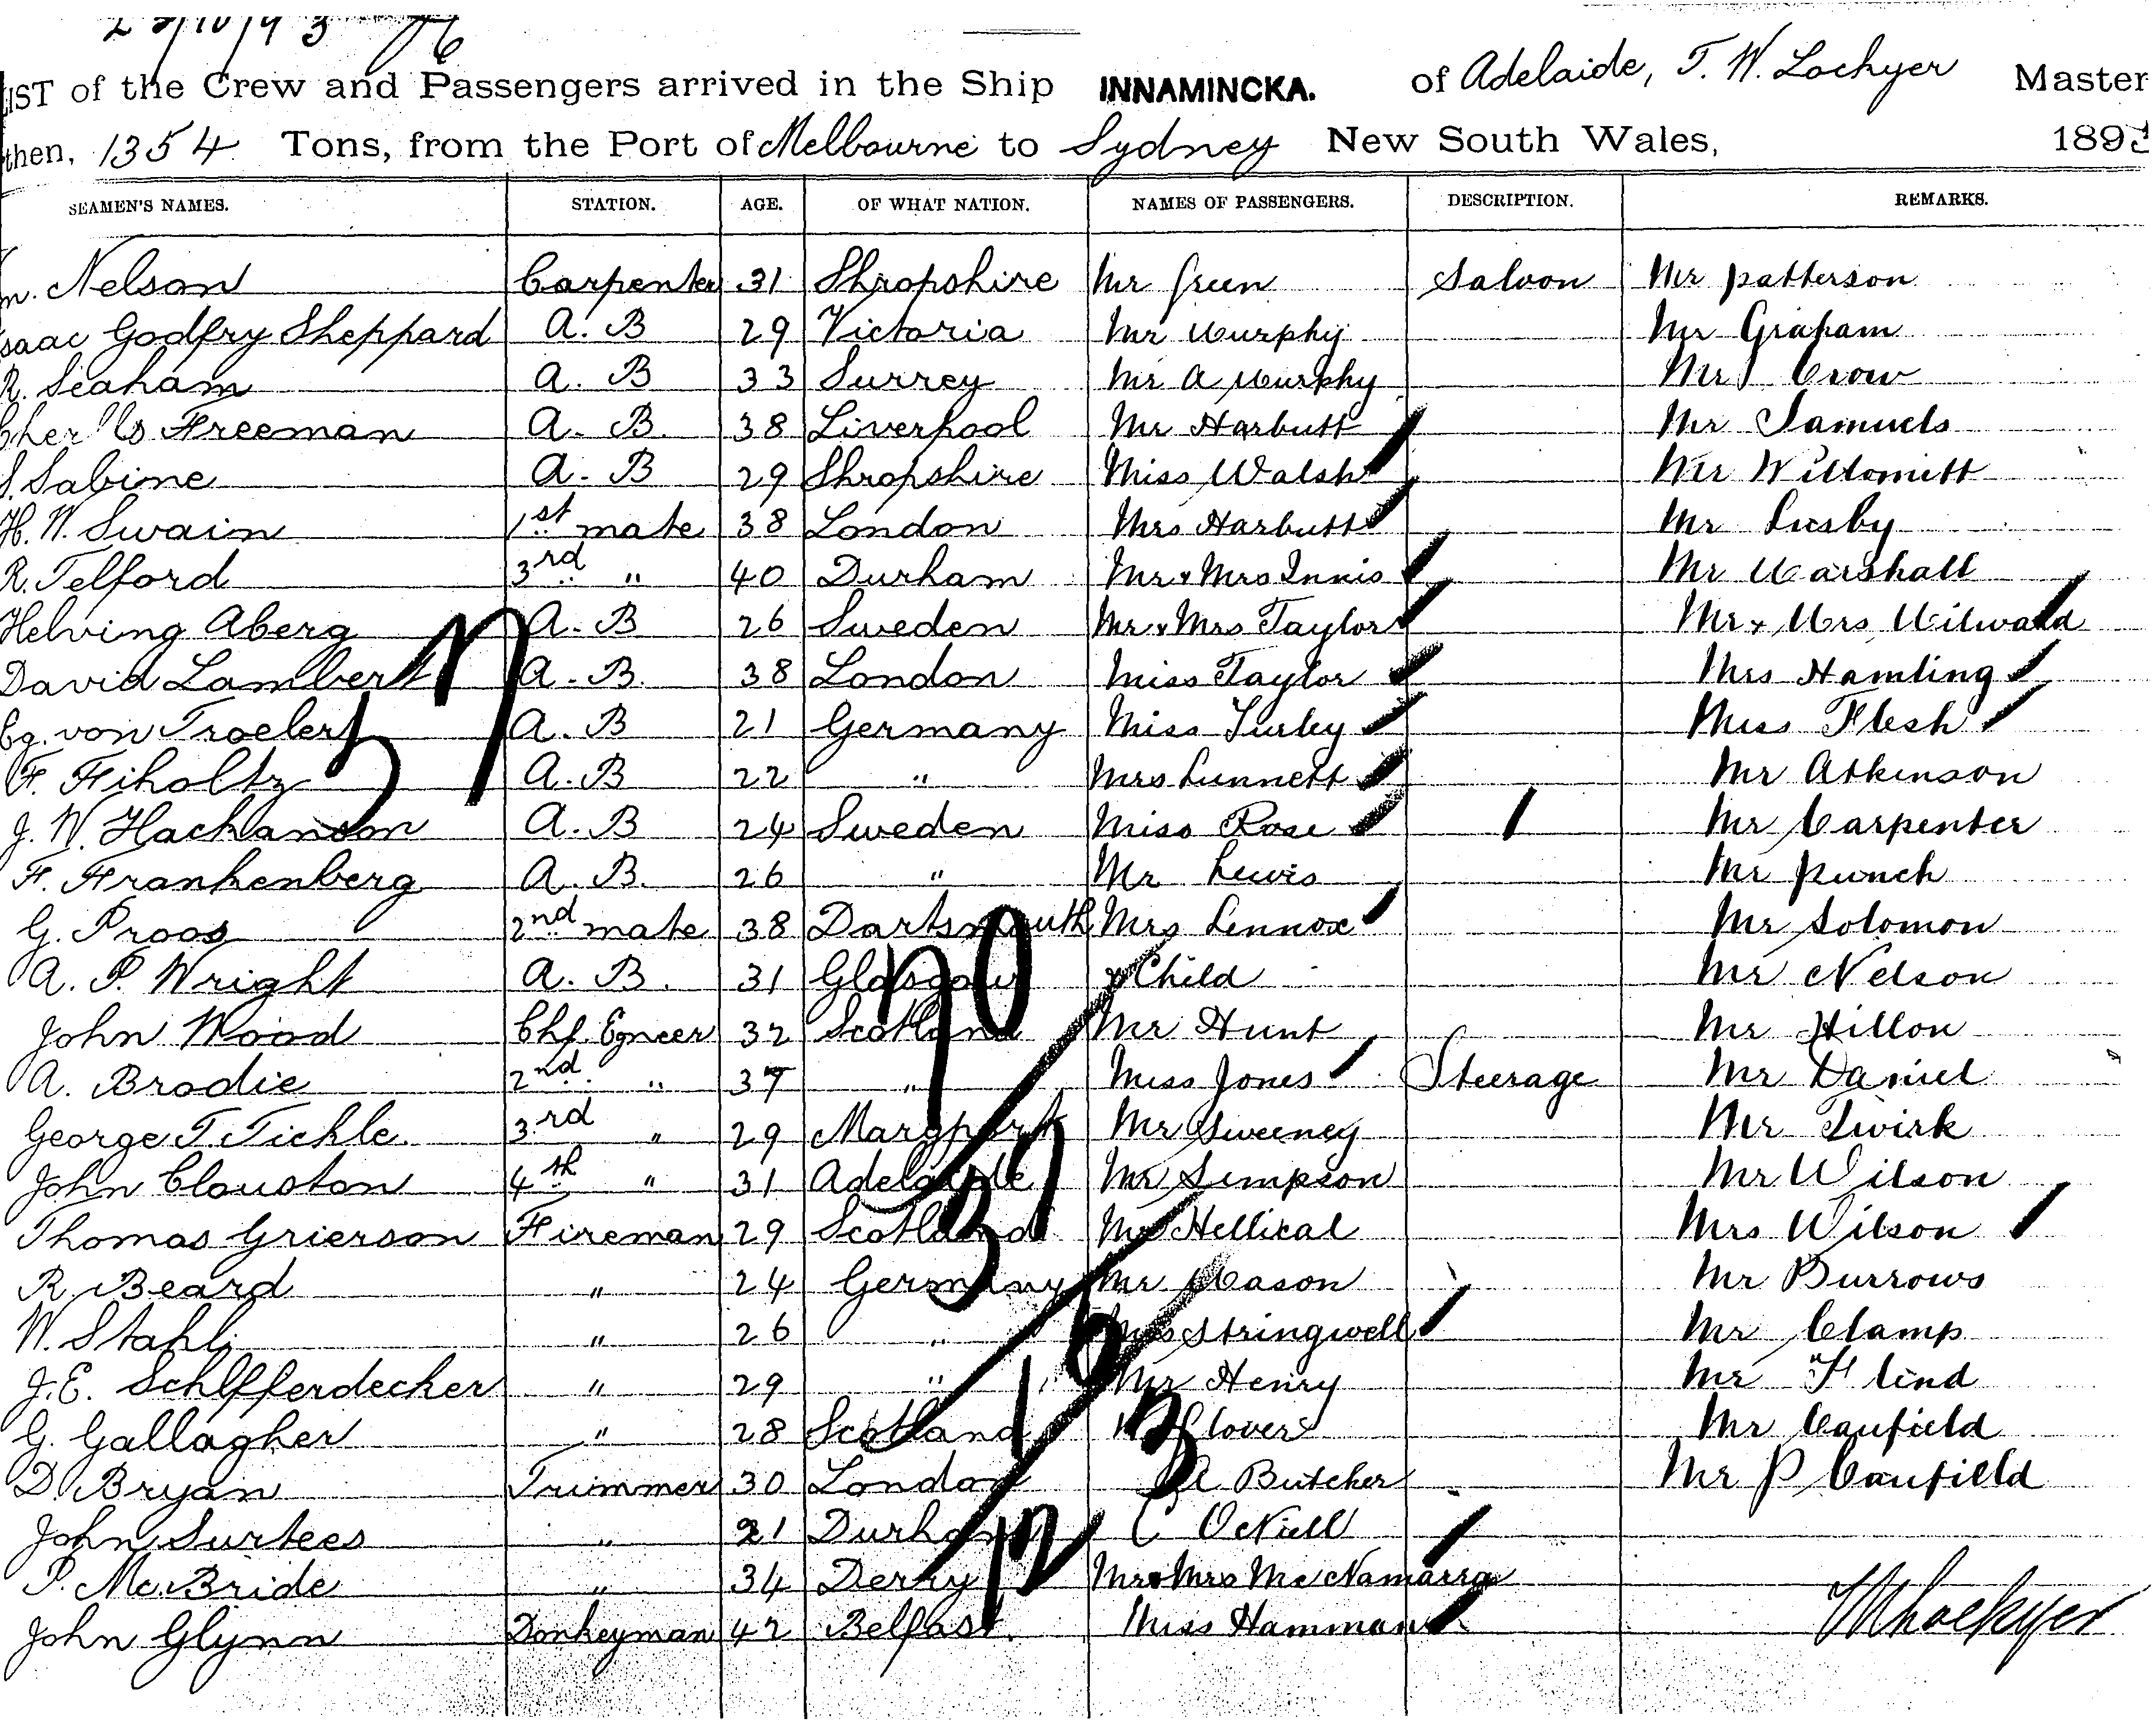 23/10/93
LIST of the Crew and Passengers arrived in the Ship INNAMINCKA. of Adelaide, T. W. Lockyer Master
then, 1354 Tons, from the Port of Melbourne to Sydney New South Wales, 1893
SEAMEN'S NAMES. STATION. AGE. OF WHAT NATION. NAMES OF PASSENGERS. DESCRIPTION. REMARKS.
m. Nelson Carpenter 31 Shropshire Mr Green Saloon Mr patterson
saac Godfry Sheppard A. B 29 Victoria Mr Murphy Mr Graham
R. Seaham A. B 33 Surrey Mr A Murphy Mr Crow
Freeman A. B. 38 Liverpool Mr Harbutt Mr Samuels
S. Sabine A. B 29 Shropshire Miss Walsh Mr Willomitt
H. W. Swain 1st mate 38 London Mrs Harbutt Mr Lusby
R. Telford 3rd " 40 Durham Mr & Mrs Innis Mr Marshall
Helving Aberg A. B 26 Sweden Mr & Mrs Taylor Mr & Mrs Milwald
David Lambert A. B. 38 London Miss Taylor Mrs Hamling
von Troeler A. B 21 Germany Miss Turley Miss Flesh
F. Fiholtz A. B 22 " Mrs Lunnett Mr Atkinson
J. W. Hachanson A. B 24 Sweden Miss Rose Mr Carpenter
F. Frankenberg A. B. 26 " Mr Lewis Mr punch
G. Proos 2nd mate 38 Dartsmouth Mrs Lennox Mr Solomon
A. P. Wright A. B. 31 Glasgow & Child Mr Nelson
John Wood Chf. Egneer 32 Scotland Mr Hunt Mr Hillon
A. Brodie 2nd " 37 " Miss Jones Steerage Mr Daniel
George T. Tickle 3rd " 29 Maryport Mr Sweeney Mr Twirk
John Clouston 4th " 31 Adelaide Mr Simpson Mr Wilson
Thomas Grierson Fireman 29 Scotland Mr Hellical Mrs Wilson
R. Beard " 24 Germany Mr Mason Mr Burrows
W. Stahl " 26 " Mrs Stringwell Mr Clamp
J. E. Schlfferdecker " 29 " Mr Henry Mr Flind
G. Gallagher " 28 Scotland Glover Mr Caufield
D. Bryan Trimmer 30 London A Butcher Mr P Caufield
John Surtees " 21 Durham C ONiell
P. McBride " 34 Derry Mr & Mrs McNamarra
John Glynn Donkeyman 42 Belfast. Miss Hamman
TWLockyer